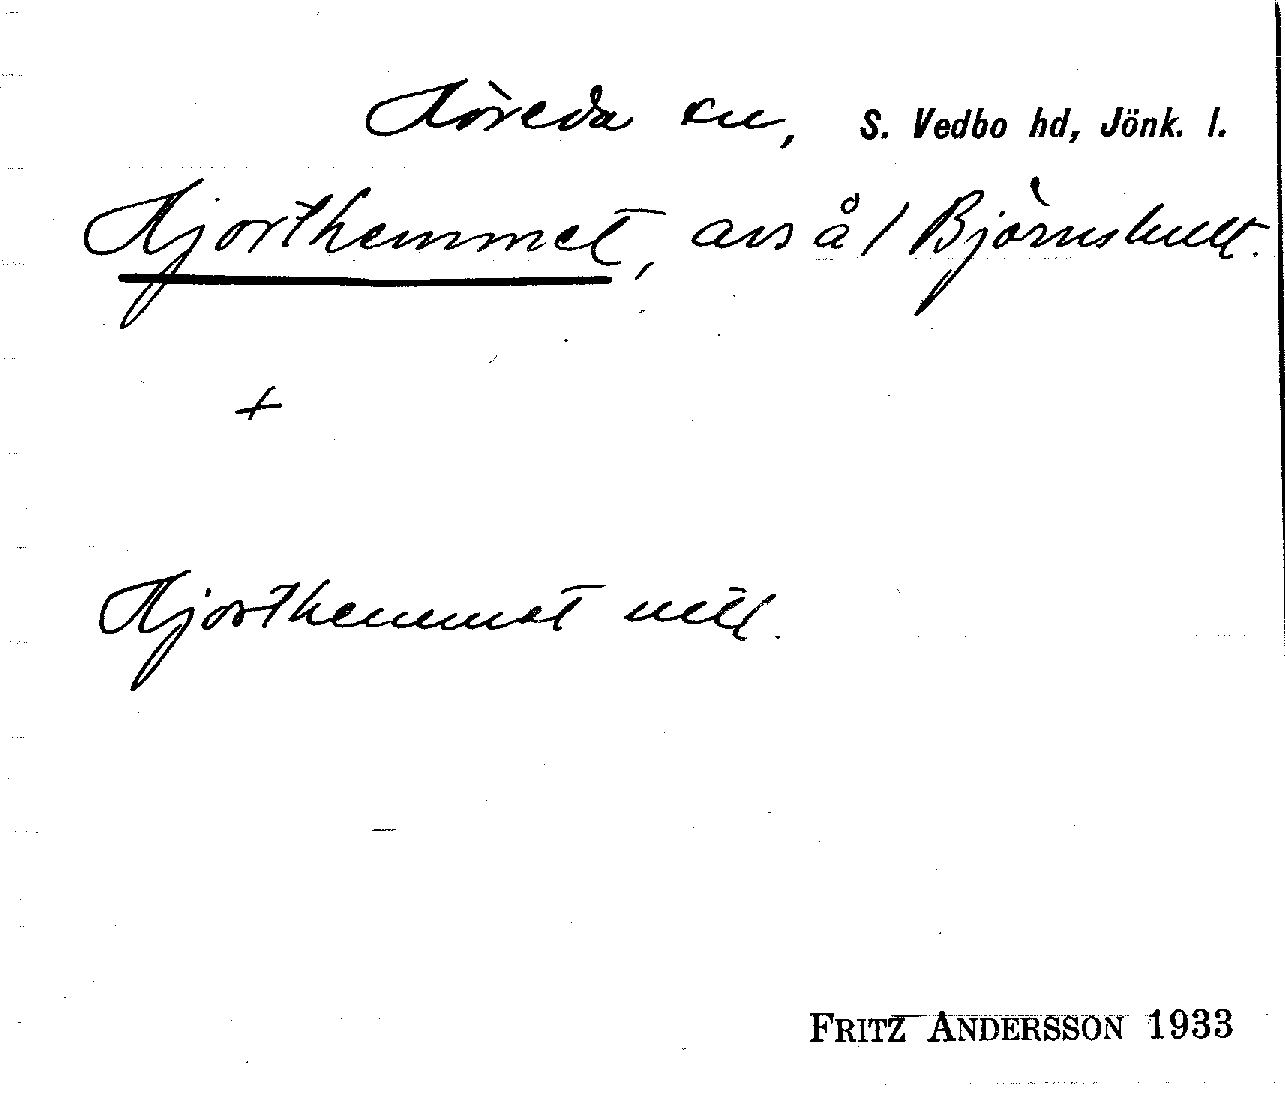 Höreda sn, S. Vedbo hd, Jönk. l.
Hjorthemmet, avs å 1 Björnshult.
+
Hjorthemmet
FRITZ ANDERSSON 1933